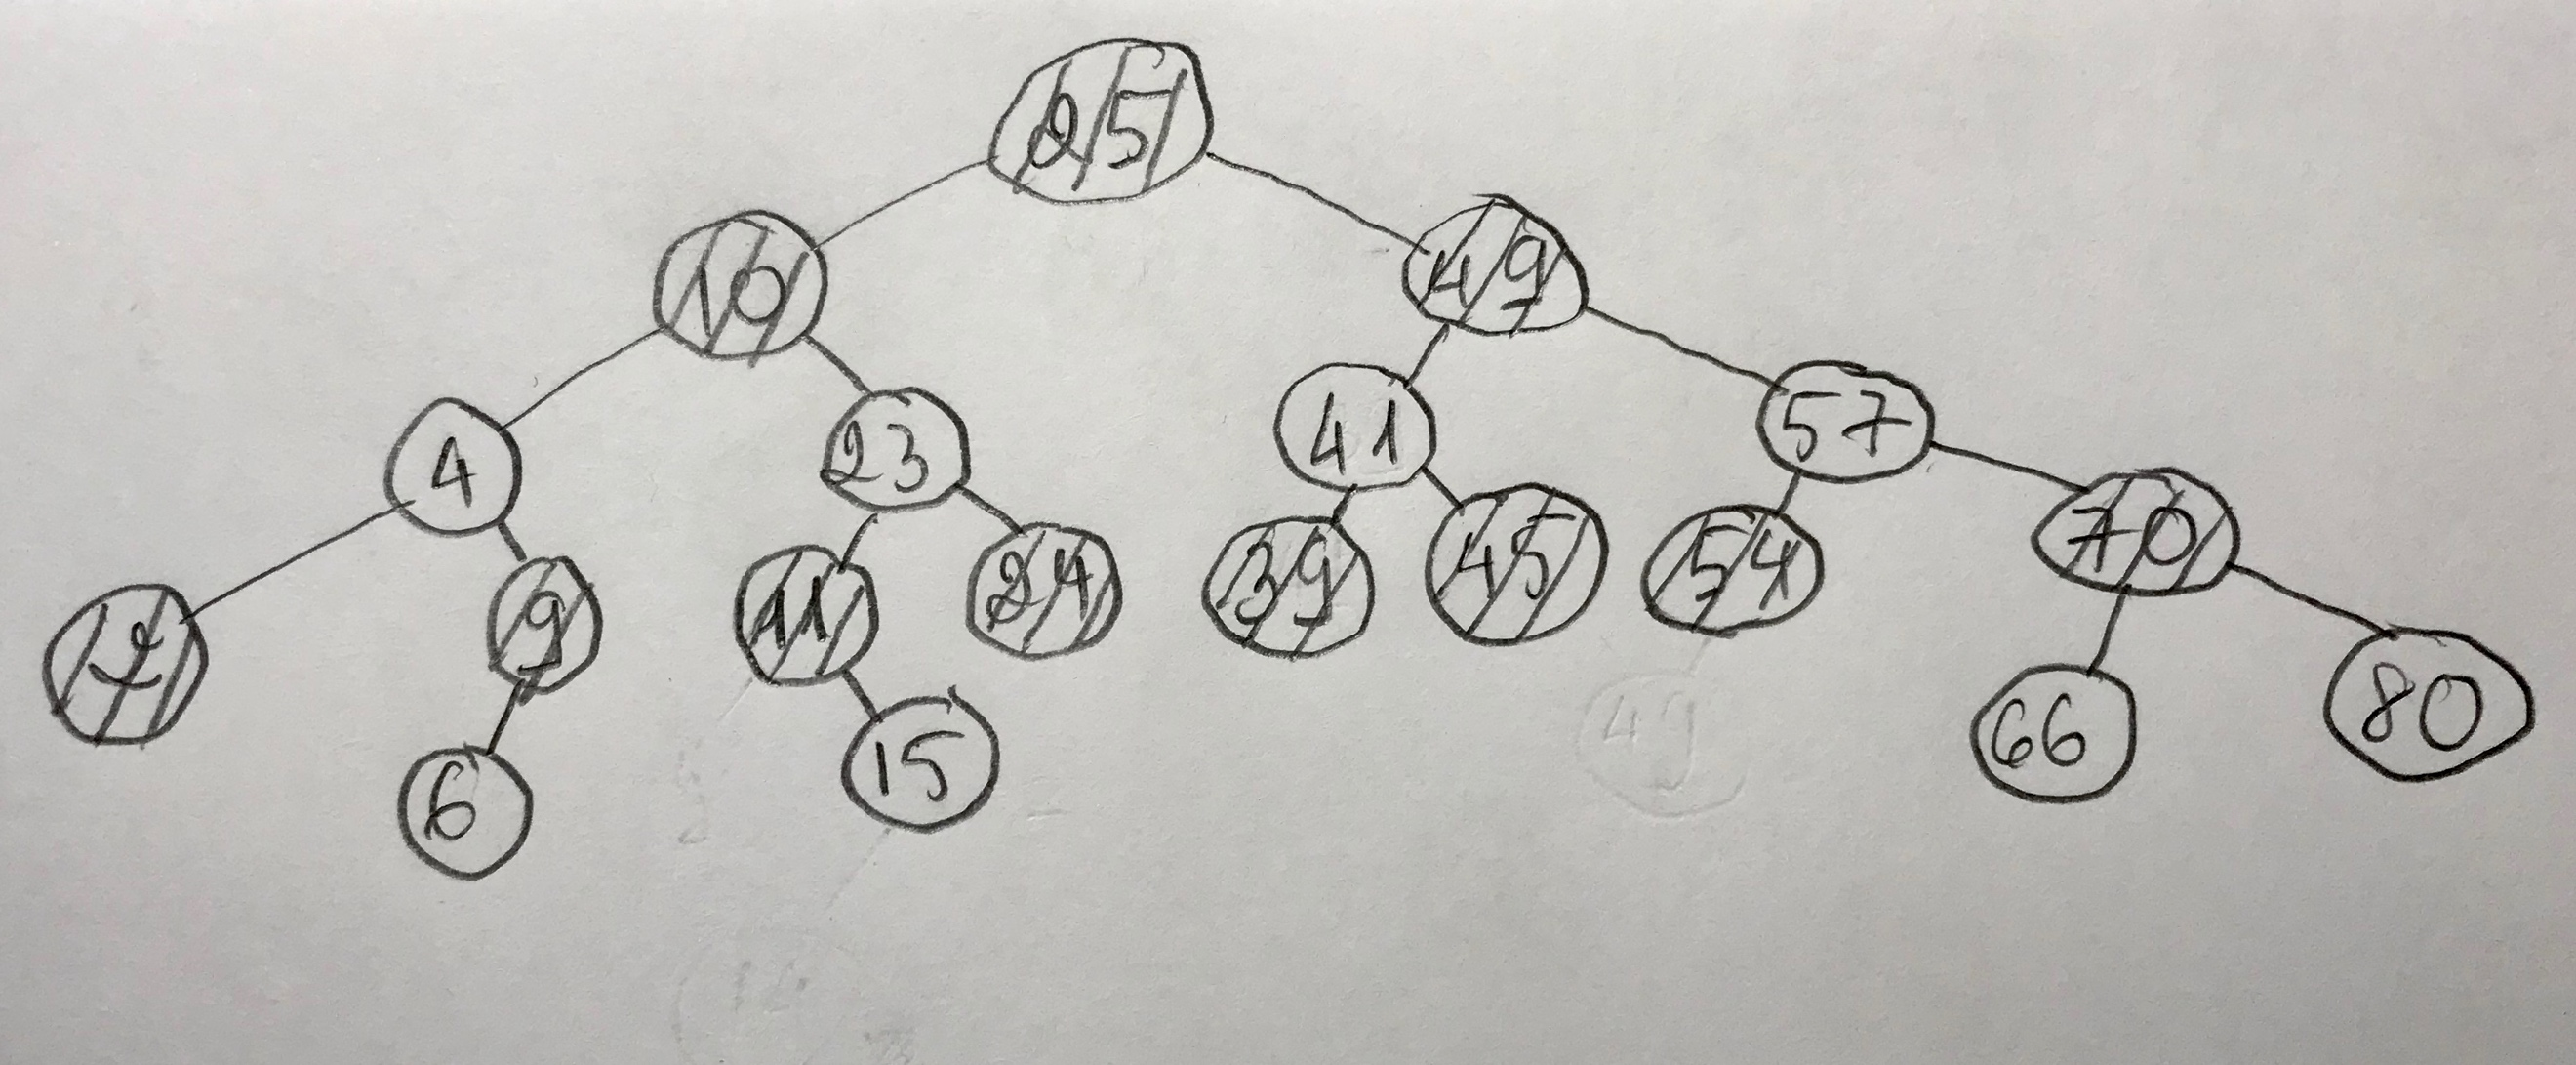 25
10 49
4 23 41 57
2 9 11 24 39 45 54 70
6 15 66 80